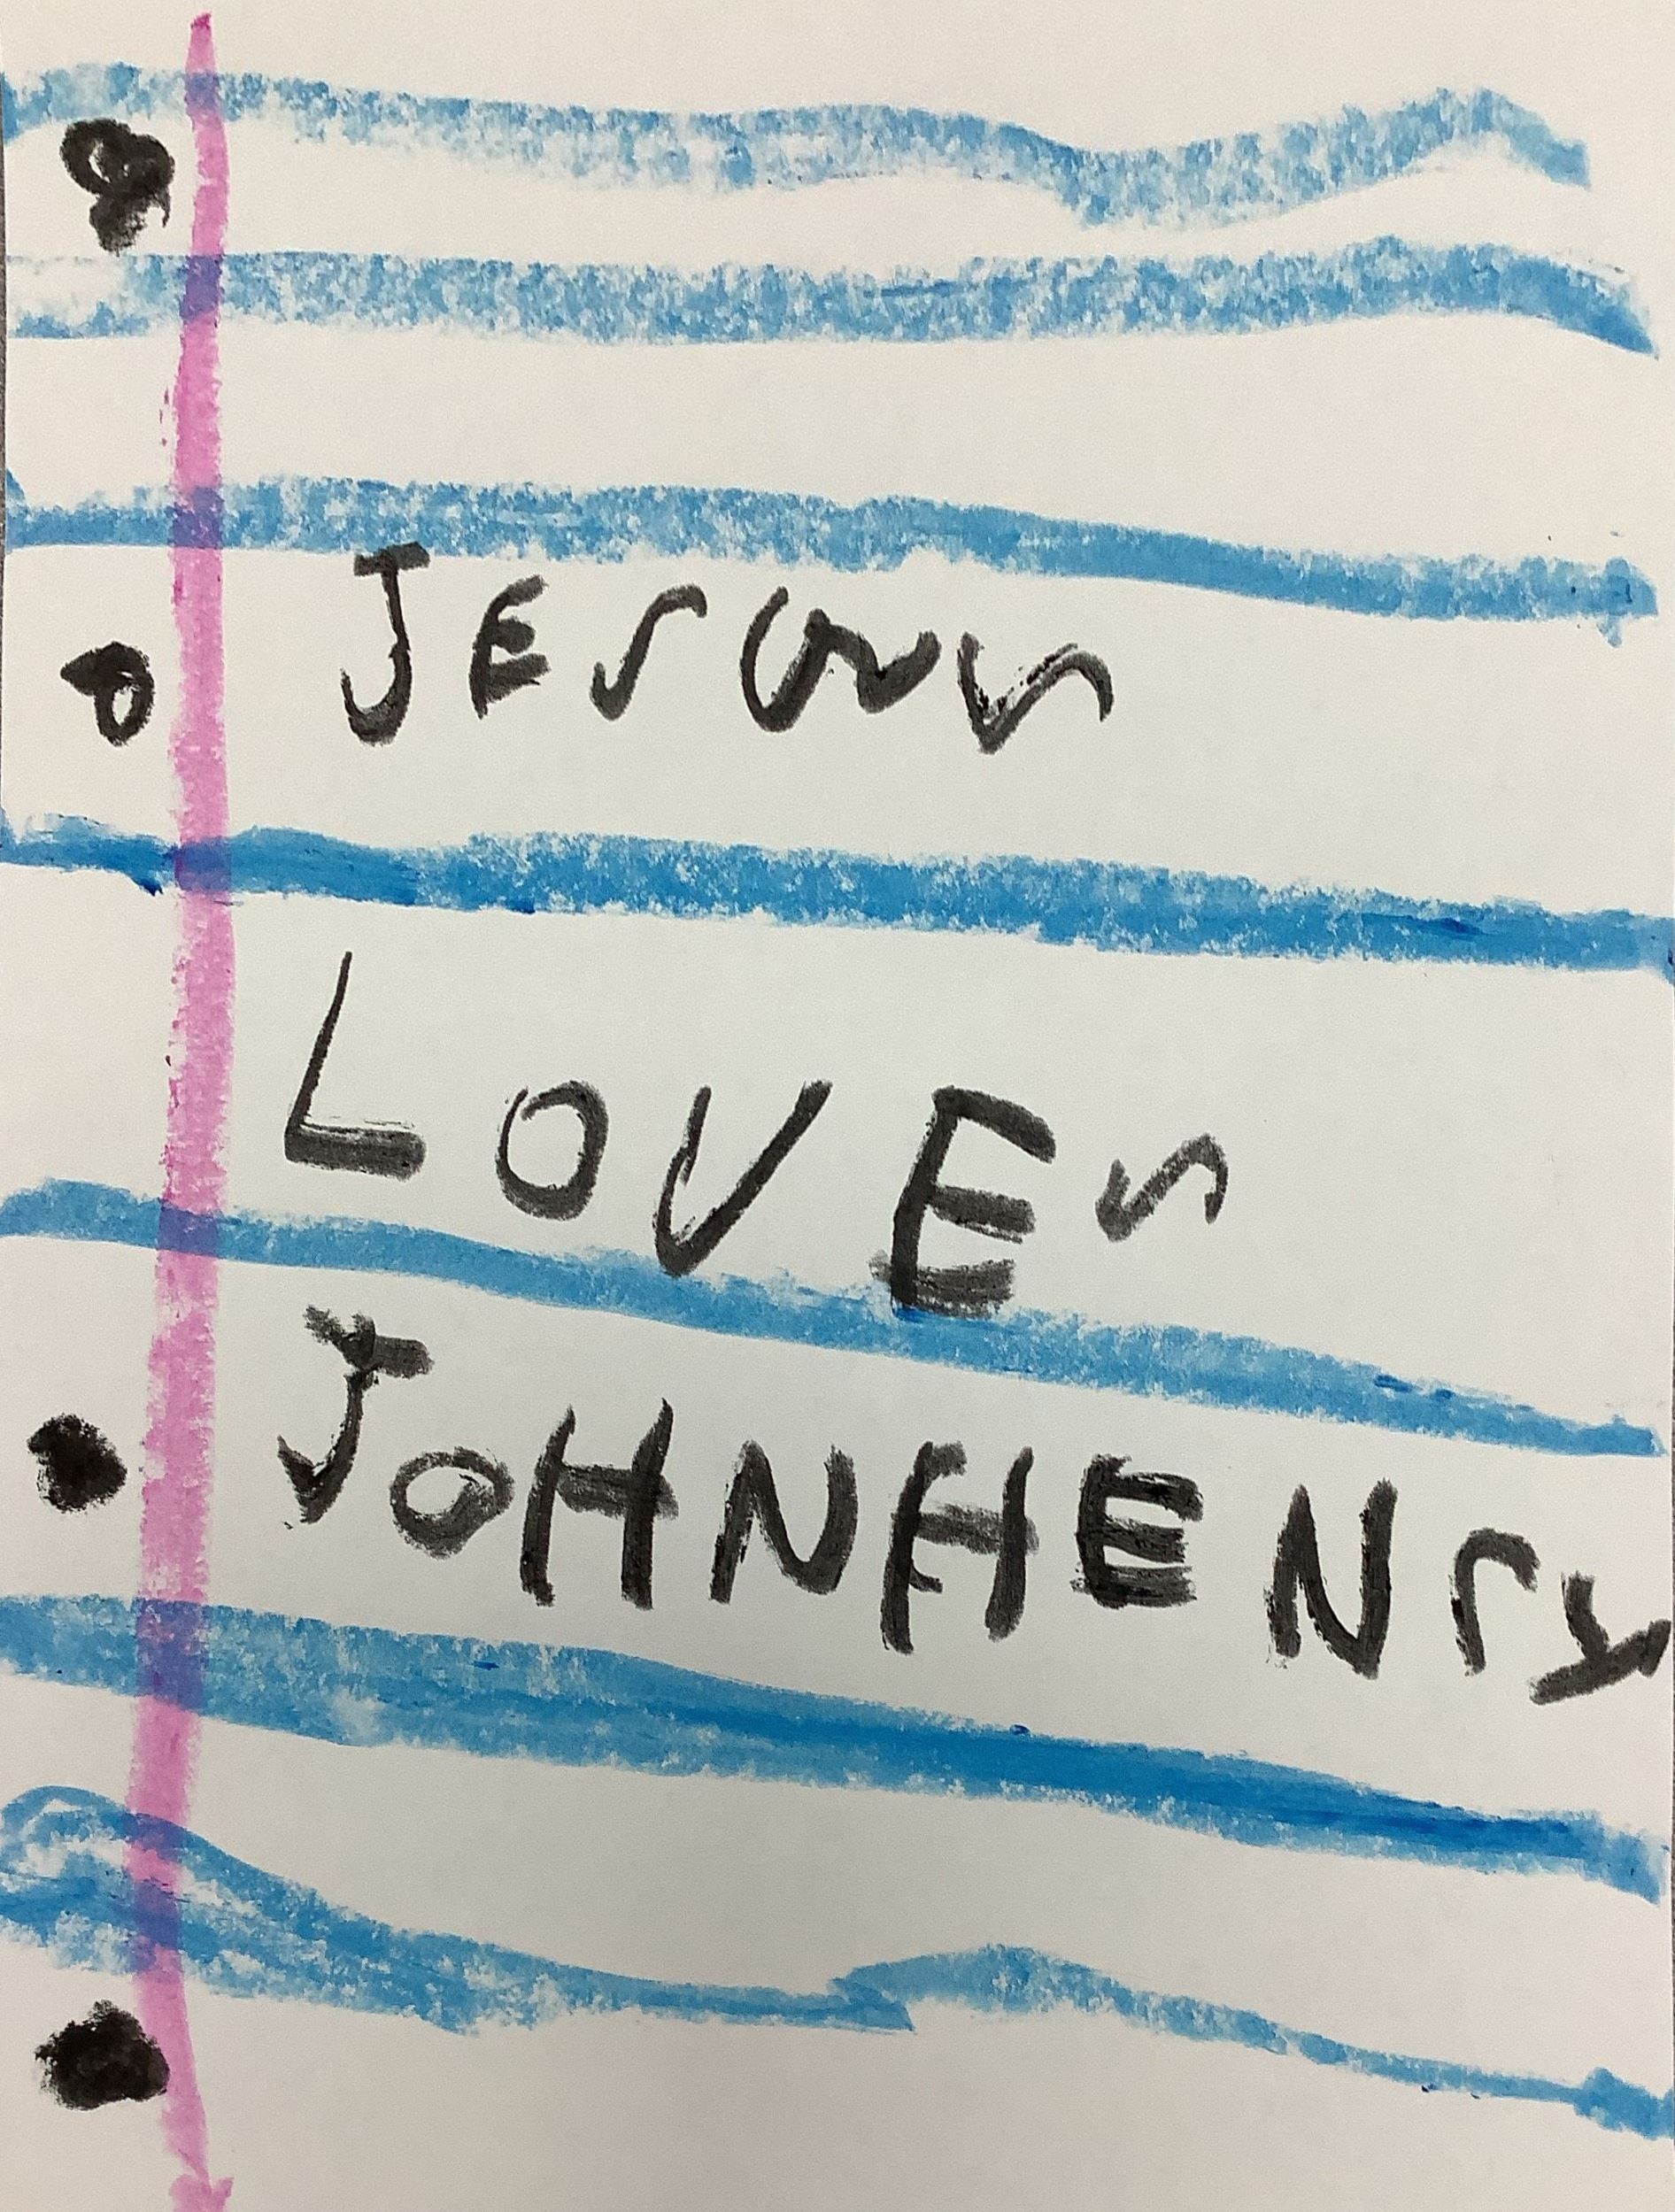 JESUS
LOVES
JOHNHENry